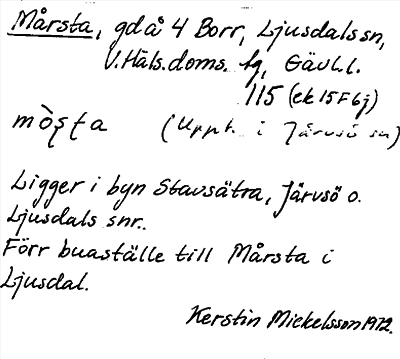 Mårsta, gd å 4 Borr, Ljusdals sn,
V. Häls. doms. hg, Gävl. l.
115 (ek 15F 6j)
mo̢̊sta (Uppt. i Järvsö sn)
Ligger i byn Stavsätra, Järvsö o.
Ljusdals snr.
Förr buaställe till Mårsta i
Ljusdal.
Kerstin Mickelsson 1972.